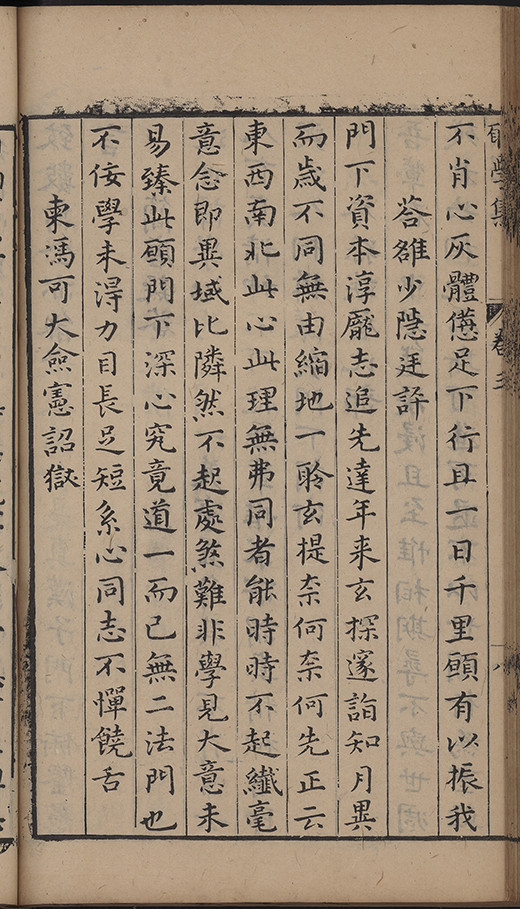 不肖心灰體憊足下行且一日千里頋有以振我
荅雒少隱廷評
門下資本淳龐志追先達年来玄探邃詣知月異
而歲不同無由縮地一聆玄提柰何柰何先正云
東西南北此心此理無弗同者能時時不起纖毫
意念即異域比隣然不起處煞難非學見大意未
易臻此頋門下深心究竟道一而已無二法門也
不佞學未淂力目長足短系心同志不憚饒舌
柬馮可大僉憲詔獄
學集
卷